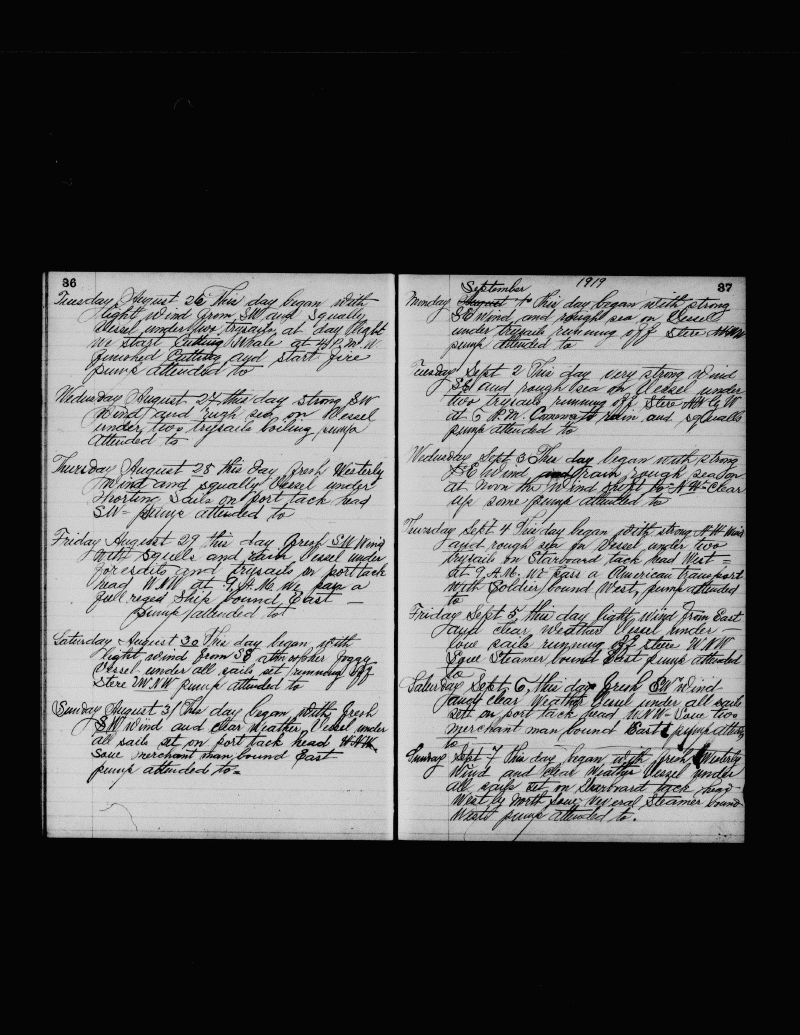 36
Tuesday August 26 This day began with
light wind from SW and squally
Vessel under two trysails, at day light
we start Cutting Whale at 4 P.M. W
finished Cutting and start fire
pump attended to
Wednesday August 27 this day strong SW
Wind and rugh sea on Vessel
under two trysails boiling, pump
attended to
Thursday August 28 this day fresh Westerly
Wind and squally Vessel under
Shorting Sails on port tack head
SW- pump attended to
Friday August 29 this day fresh S.W. Wind
with squells and rain Vessel under
foresails and trysails on port tack
head WNW at 9, A.M. we pass a
full reged Ship bound East —
pump attended to
Saturday August 30 This day began with
light wind from SE foggy
Vessel under all sails set running off
stere WNW pump attended to
Sunday August 31 This day began with fresh
SW Wind and Clear Weather, Vessel under
all sails set on port tack head
Saue merchant man bound East
pump attended to=
37
September 1919
Monday August 1 this day began with strong
SE wind and rough sea on Vessel
under trysails running off stere
pump attended to
Tuesday Sept 2 This day very strong Wind
SE and rough sea on Vessel under
two trysails running off stere NW by W
at 6 P.M. rain and squalls
pump attended to
Wednesday Sept 3 This day began with strong
SE Wind and rain rough sea on
at Noon the Wind shift to N.W- Clear
up some pump attended to
Thursday Sept 4 This day began with strong N.W. Wind
and rough sea on Vessel under two
trysails on Starboard tack head West =
At 9, A.M. We pass a American transport
with Soldier bound West, pump attended
to
Friday Sept 5, this day light, wind from East
and clear, Weather Vessel under —
low sails running off steer WNW
Saue Steamer bound East pump attended
to
Saturday Sept, 6, this day fresh SW wind
and clear Weather Vessel under all sails
set on port tack head WNW- Saue two
merchant man bound East, pump attended
to
Sunday Sept 7 this day began with fresh Westerly
Wind and clear Weather Vessel under
all sails set, on Starboard tack head
West by North Saue, Several Steamer bound
West pump attended to.